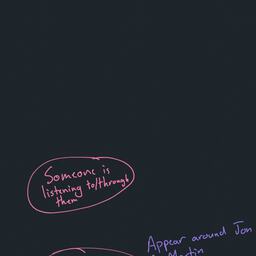 Someone is
listening to/through
them
Appear around Jon
Martin